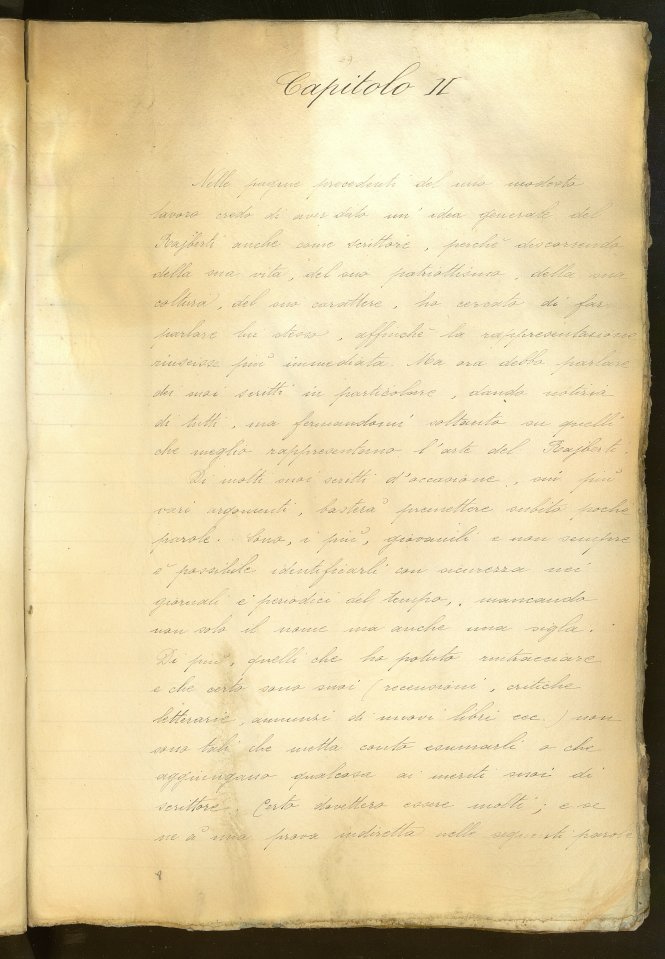 Capitolo II
Nelle pagine precedenti del mio modesto
lavoro credo di aver dato un' idea generale del
Rajberti anche come scrittore, perchè discorrendo
della sua vita, del suo patriottismo, della sua
coltura, del suo carattere, ho cercato di far
parlare lui stesso, affinchè la rappresentazione
riuscisse più immediata. Ma ora debbo parlare
dei suoi scritti in particolare, dando notizia
di tutti, ma fermandomi soltanto su quelli
che meglio rappresentano l'arte del Rajberti.
Di molti suoi scritti d'occasione, sui più
vari argomenti, basterà premettere subito poche
parole. Sono, i più, giovanili e non sempre
è possibile identificarli con sicurezza nei
giornali e periodici del tempo, mancando
non solo il nome ma anche una sigla.
Di più, quelli che ho potuto rintracciare
e che certo sono suoi (recensioni, critiche
letterarie, annunzi di nuovi libri ecc.) non
sono tali che metta conto esumarli o che
aggiungano qualcosa ai meriti suoi di
scrittore. Certo dovettero essere molti; e se
ne à una prova indiretta nelle seguenti parole